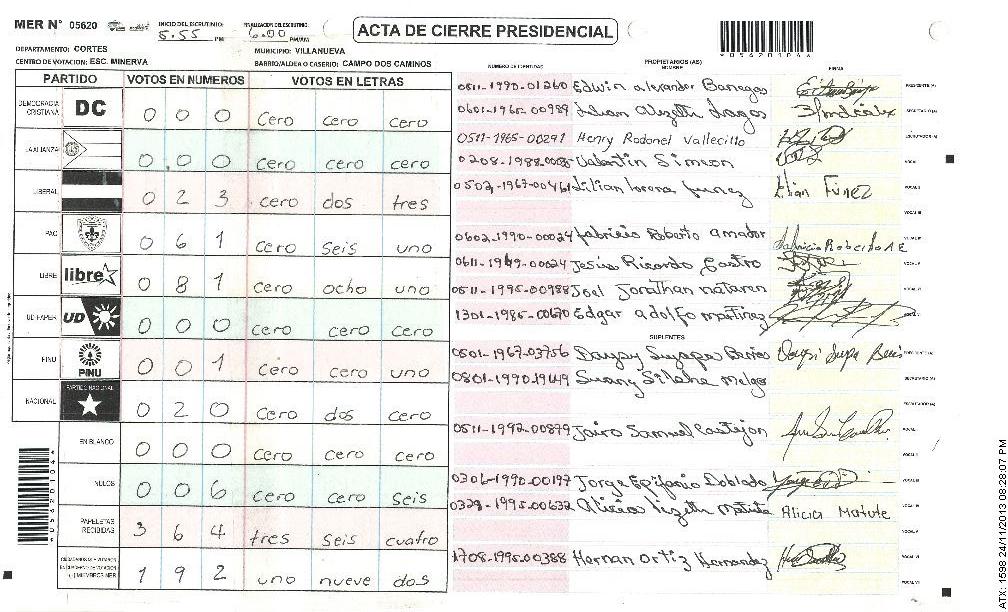 MER N° 05620 INICIO DEL ESCRUTINIO: 5.55 PM FINALIZACION DEL ESCRUTINIO: 6.00 PM/AM
ACTA DE CIERRE PRESIDENCIAL
056201044
DEPARTAMENTO: CORTES MUNICIPIO: VILLANUEVA
CENTRO DE VOTACION: ESC. MINERVA BARRIO/ALDEA O CASERIO: CAMPO DOS CAMINOS
PARTIDO VOTOS EN NUMEROS VOTOS EN LETRAS
DEMOCRACIA CRISTIANA DC 0 0 0 cero cero cero
LA ALIANZA 0 0 0 cero cero cero
LIBERAL 0 2 3 cero dos tres
PAC 0 6 1 cero seis uno
LIBRE libre 0 8 1 cero ocho uno
UD FAPER UD 0 0 0 cero cero cero
PINU PINU 0 0 1 cero cero uno
NACIONAL PARTIDO NACIONAL 0 2 0 cero dos cero
EN BLANCO 0 0 0 cero cero cero
NULOS 0 0 6 cero cero seis
PAPELETAS RECIBIDAS 3 6 4 tres seis cuatro
1 9 2 uno nueve dos
NUMERO DE IDENTIDAD PROPIETARIOS (AS) NOMBRE FIRMA
0511-1990-01260 Edwin alexander Banegas PRESIDENTE (A)
0601-1965-00989 SECRETARIO (A)
0511-1965-00291 Henry Rodonel Vallecillo ESCRUTADOR (A)
Valentin Simeon VOCAL I
0502-1967-00461 Lilian lorena funez Lilian Funez VOCAL II
VOCAL III
0602-1990-00024 fabricio Roberto amador
0611-1949-00024 Jesus Ricardo Castro
0511-1995-00988 Joel Jonathan mataren
1301-1985-00670 Edgar adolfo martinez
SUPLENTES
0501-1967-03756 Daysy Suyapa Berios
0801-1990-19149 Suany Melgar SECRETARIO (A)
ESCRUTADOR (A)
0511-1992-00879 Jairo Samuel Castejon
0306-1990-00197 Jorge Epifanio Doblado
Alicia lizeth Matute Alicia Matute
1708-1995-00388 Hernan Ortiz Hernandez
056201044
ATX: 1598 24/11/2013 08:28:07 PM